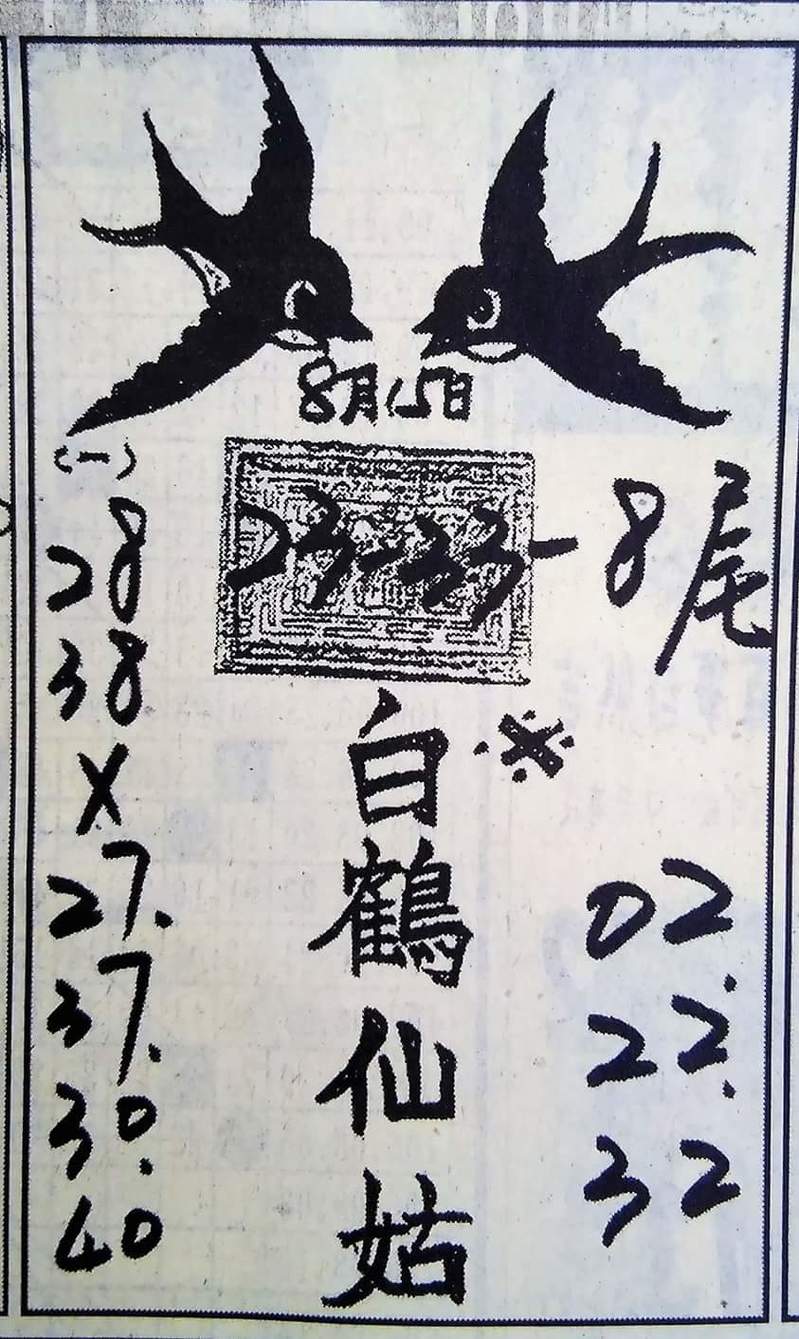 8月15日
(一)
28
38
X
27.
37.
30.
40
23-33-8尾
白鶴仙姑 ※
02.
22.
32